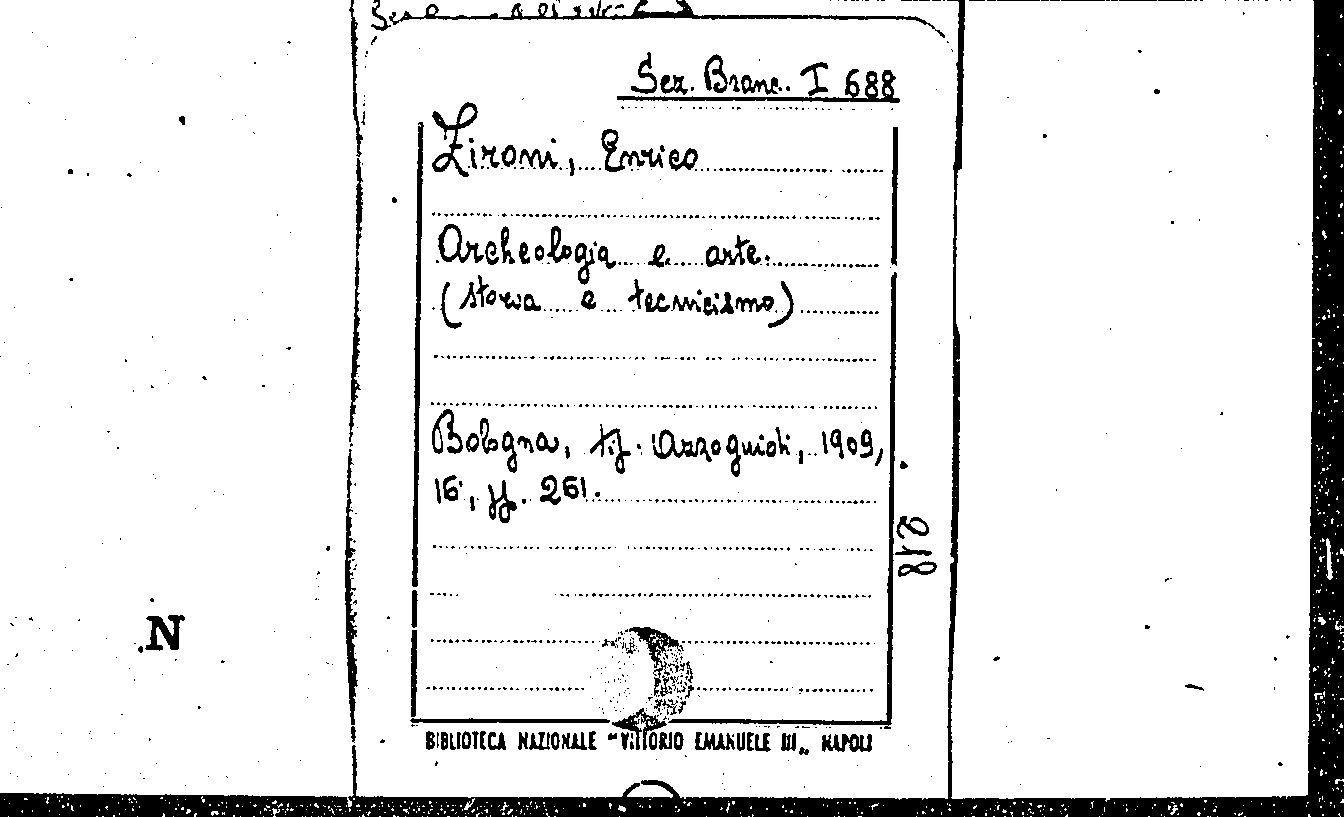 Sez. Branc. I 688
Zironi, Enrico
Archeologia e arte.
(storia e tecnicismo)
Bologna, tip. Azzoguidi, 1909,
16°, pp. 261.
218
N
BIBLIOTECA NAZIONALE "VITTORIO EMANUELE III„ NAPOLI